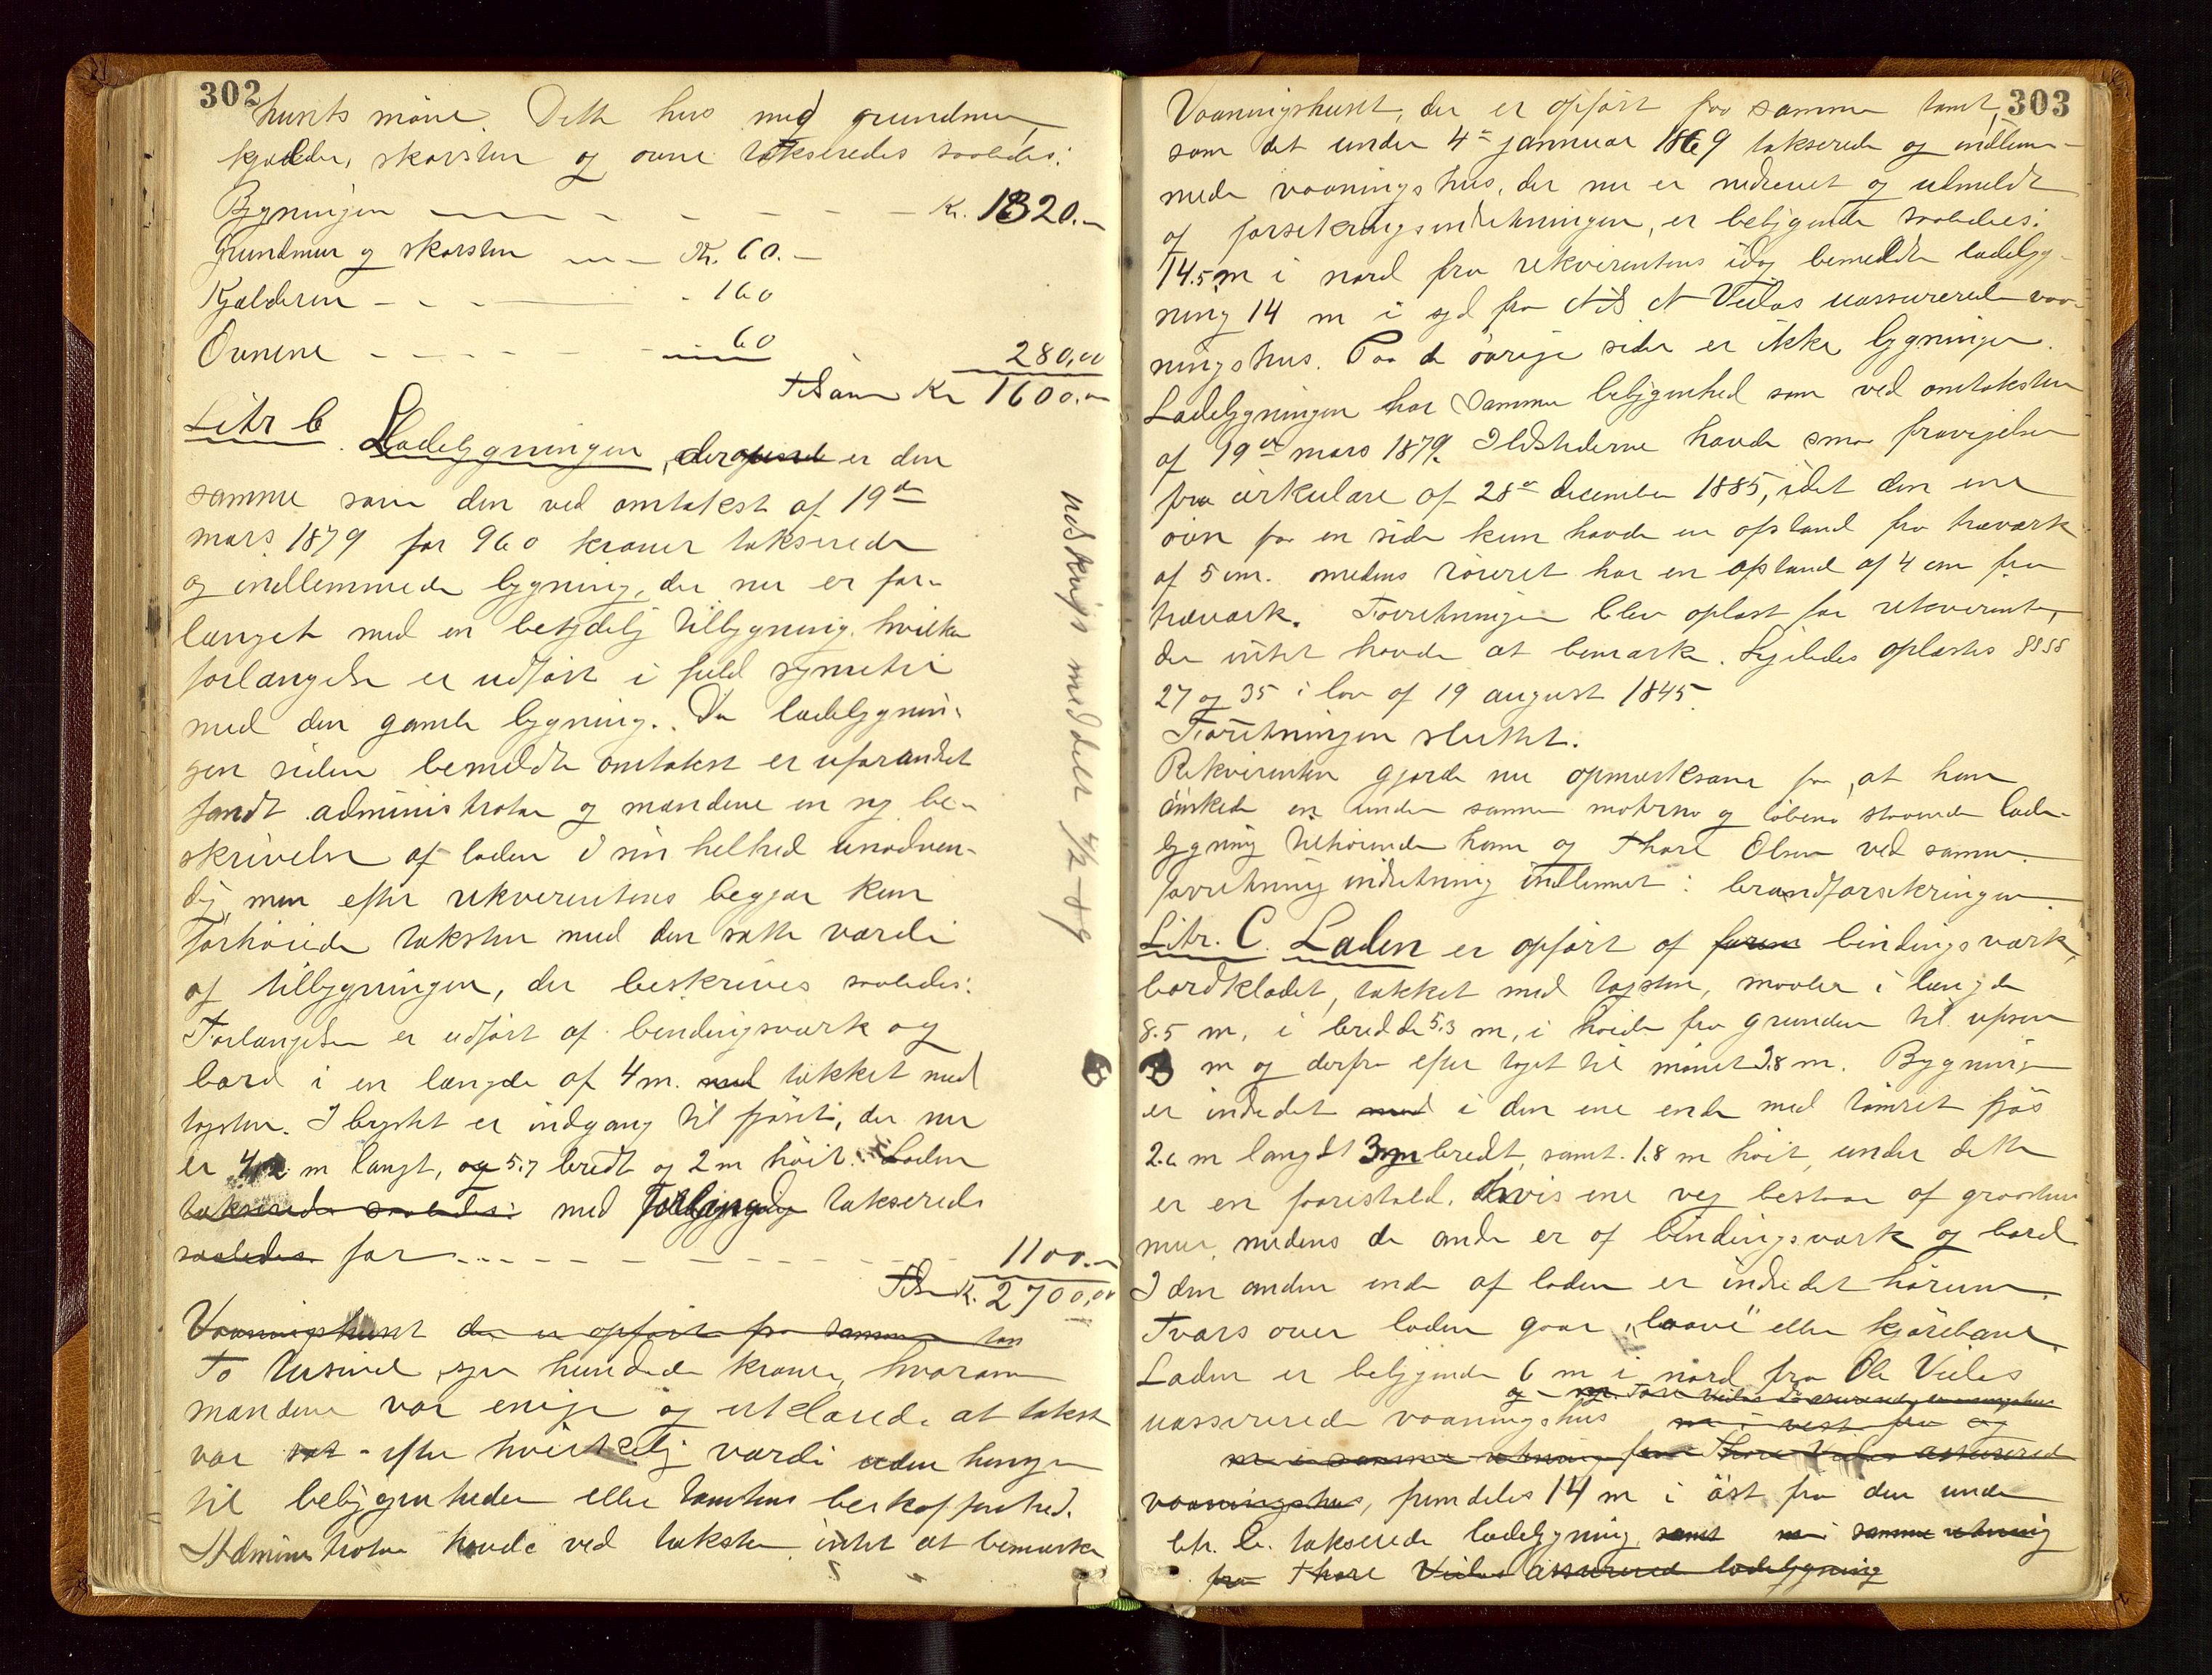 302
husets møne. Dette hus med grundmur,
kjælder, skorsten og ovne takseredes saaledes:
Bygningen — — — — Kr. 1320.–
Grundmur og skorsten — — Kr. 60.–
Kjælderen — — — - 160
Ovnene — — — 60
280,00
Tilsam Kr 1600.–
Litr b. Ladebygningen, er den
samme som den ved omtakst af 19de
mars 1879 for 960 kroner takserede
og indlemmede bygning, der nu er for-
længet med en betydelig tilbygning, hvilken
forlængelse er udført i fuld symetri
med den gamle bygning. Da ladebygnin-
gen siden bemeldte omtakst er uforandret
fandt administrator og mændene en ny be-
skrivelse af laden i sin helhed unødven-
dig, men efter rekvirentens begjær kun
forhøiede taksten med den satte værdi
af tilbygningen, der beskrives saaledes:
Forlængelsen er udført af bindingsværk og
bord i en længde af 4 m. med tækket med
tagsten. I bygget er indgang til fjøset, der nu
er 4,2 m langt, og 5.7 bredt og 2 m høit. Laden
takserede saaledes: med takserede
saaledes for — — — 1100.–
Tils. K. 2700,00
Vaaningshuset der er opført paa samme tom
To tusind syv hundrede kroner, hvorom
mændene var enige og erklærede at takst
var sat efter hvirkelig værdi uden hensyn
til beliggenheden eller tomtens beskaffenhed.
Administrator havde ved taksten intet at bemærke
Udskrift meddelt 4/2 - 89
303
Vaaningshuset, der er opført paa samme tomt,
som det under 4de januar 1869 takserede og indlem-
mede vaaningshus, der nu er nedrevet og udmeldt
af forsikringsindretningen, er beliggende saaledes:
14.5 m i nord fra rekvirentens idag bemeldte ladebyg-
ning 14 m i syd fra Nils N Veilas uassurerede vaa-
ningshus. Paa de øvrige sider er ikke bygninger.
Ladebygningen har samme beliggenhed som ved omtaksten
af 19de mars 1879. Ildstederne havde smaa fravigelser
fra cirkulære af 28de december 1885, idet den ene
ovn paa en side kun havde en afstand fra træværk
af 5 cm. medens røret har en afstand af 4 cm fra
træværk. Forretningen blev oplæst for rekvirenten,
der intet havde at bemærke. Ligeledes oplæstes §§
27 og 35 i lov af 19 august 1845.
Forretningen sluttet.
Rekvirenten gjorde nu opmærksom paa, at han
ønskede en under samme matrno og løbeno staaende lade-
bygning tilhørende ham og Thore Olsen ved samme
forretning indlemmet i brandforsikringen.
Litr. C. Laden er opført af bindingsværk,
bordklædet, tækket med tagsten, maaler i længde
8.5 m, i bredde 5.3 m, i høide fra grunden til ufsen
m og derfra efter taget til mønet 3.8 m. Bygningen
er indredet med i den ene ende med tømret fjøs
2.6 m langt 3 m bredt, samt 1.8 m høit, under dette
er en faarestald. Hvis ene veg bestaar af graastens
mur, medens de andre er af bindingsværk og bord.
I den anden ende af laden er indredet hørum.
Tvers over laden gaar "laave" eller kjørebane.
Laden er beliggende 6 m i nord fra Ole Veilas
uassurerede vaaningshus m i vest fra og
m i samme retning fra Thore Veilas assurerede
vaaningshus, fremdeles 14 m i øst fra den under
litr. b. takserede ladebygning, samt m i samme retning
fra Thore Veilas assurered ladebygning